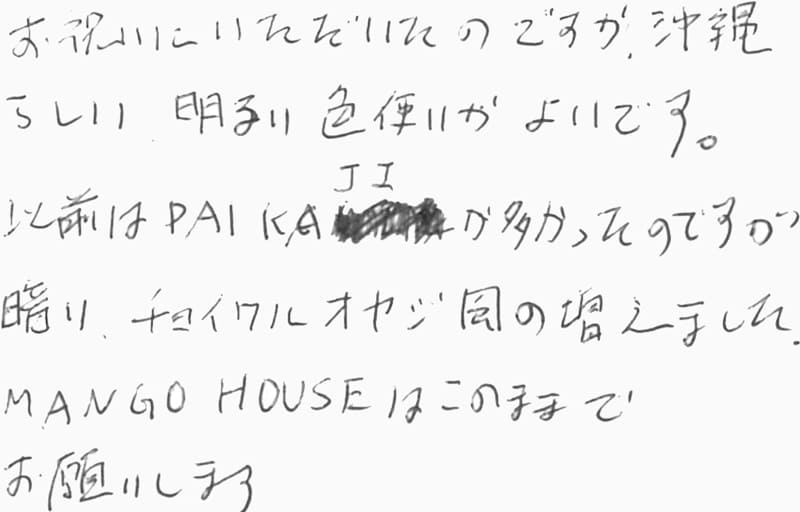 お祝いにいただいたのですが、沖縄
らしい 明るい 色使いが よいです。
JI
以前は PAIKA が多かったのですが
暗い、チョイワルオヤジ風の増えました.
MANGO HOUSEはこのままで
お願いします